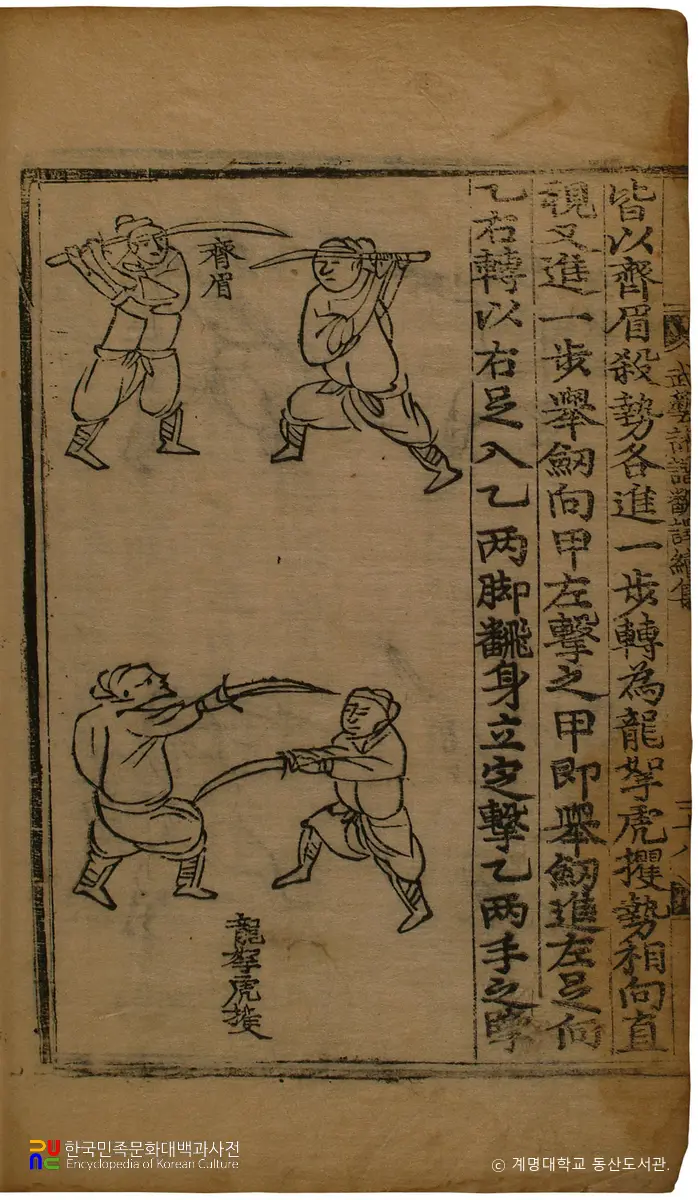 武藝諸譜飜譯續集
三十八
皆以齊眉殺勢各進一步轉為龍拏虎攫勢相向直
視又進一步舉劒向甲左擊之甲即舉劒進左足向
乙右轉以右足入乙两脚飜身立定擊乙两手之時
齊眉
龍拏虎攫
한국민족문화대백과사전
Encyclopedia of Korean Culture
© 계명대학교 동산도서관.